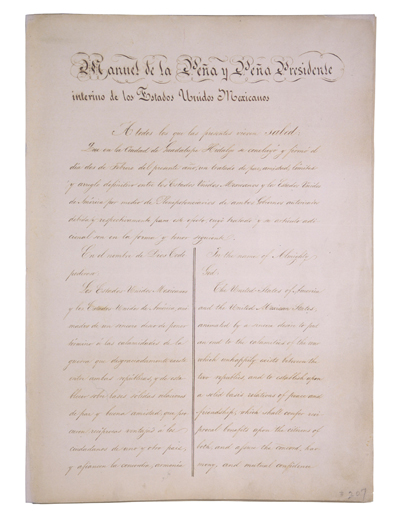 Manuel de la Peña y Peña Presidente
interino de los Estados Unidos Mexicanos
A todos los que las presentes vieren sabed:
Que en la Ciudad de Guadalupe Hidalgo se concluyó y firmó el
dia dos de Febrero del presente año, un tratado de paz, amistad, limites
y arreglo definitivo entre los Estados Unidos Mexicanos y los Estados Unidos
de America por medio de Plenipotenciarios de ambos Gobiernos autorizados
debida y respectivamente para este efecto, cuyo tratado y su articulo adi-
cional son en la forma y tenor siguiente.
En el nombre de Dios Todo
poderoso
Los Estados Unidos Mexicanos
y los Estados Unidos de America, ani-
mados de un sincero deseo de poner
término a las calamidades de la
guerra que desgraciadamente existe
entre ambas repúblicas, y de esta-
blecer sobre bases sólidas relaciones
de paz y buena amistad, que
reciprocas ventajas a los
ciudadanos de uno y otro pais,
y afiancen la concordia, armonia
In the name of Almighty
God:
The United States of America
and the United Mexican States,
animated by a sincere desire to put
an end to the calamities of the war
which unhappily exists between the
two republics, and to establish upon
a solid basis relations of peace and
friendship, which shall confer reci-
procal benefits upon the citizens of
both, and assure the concord, har-
mony, and mutual confidence